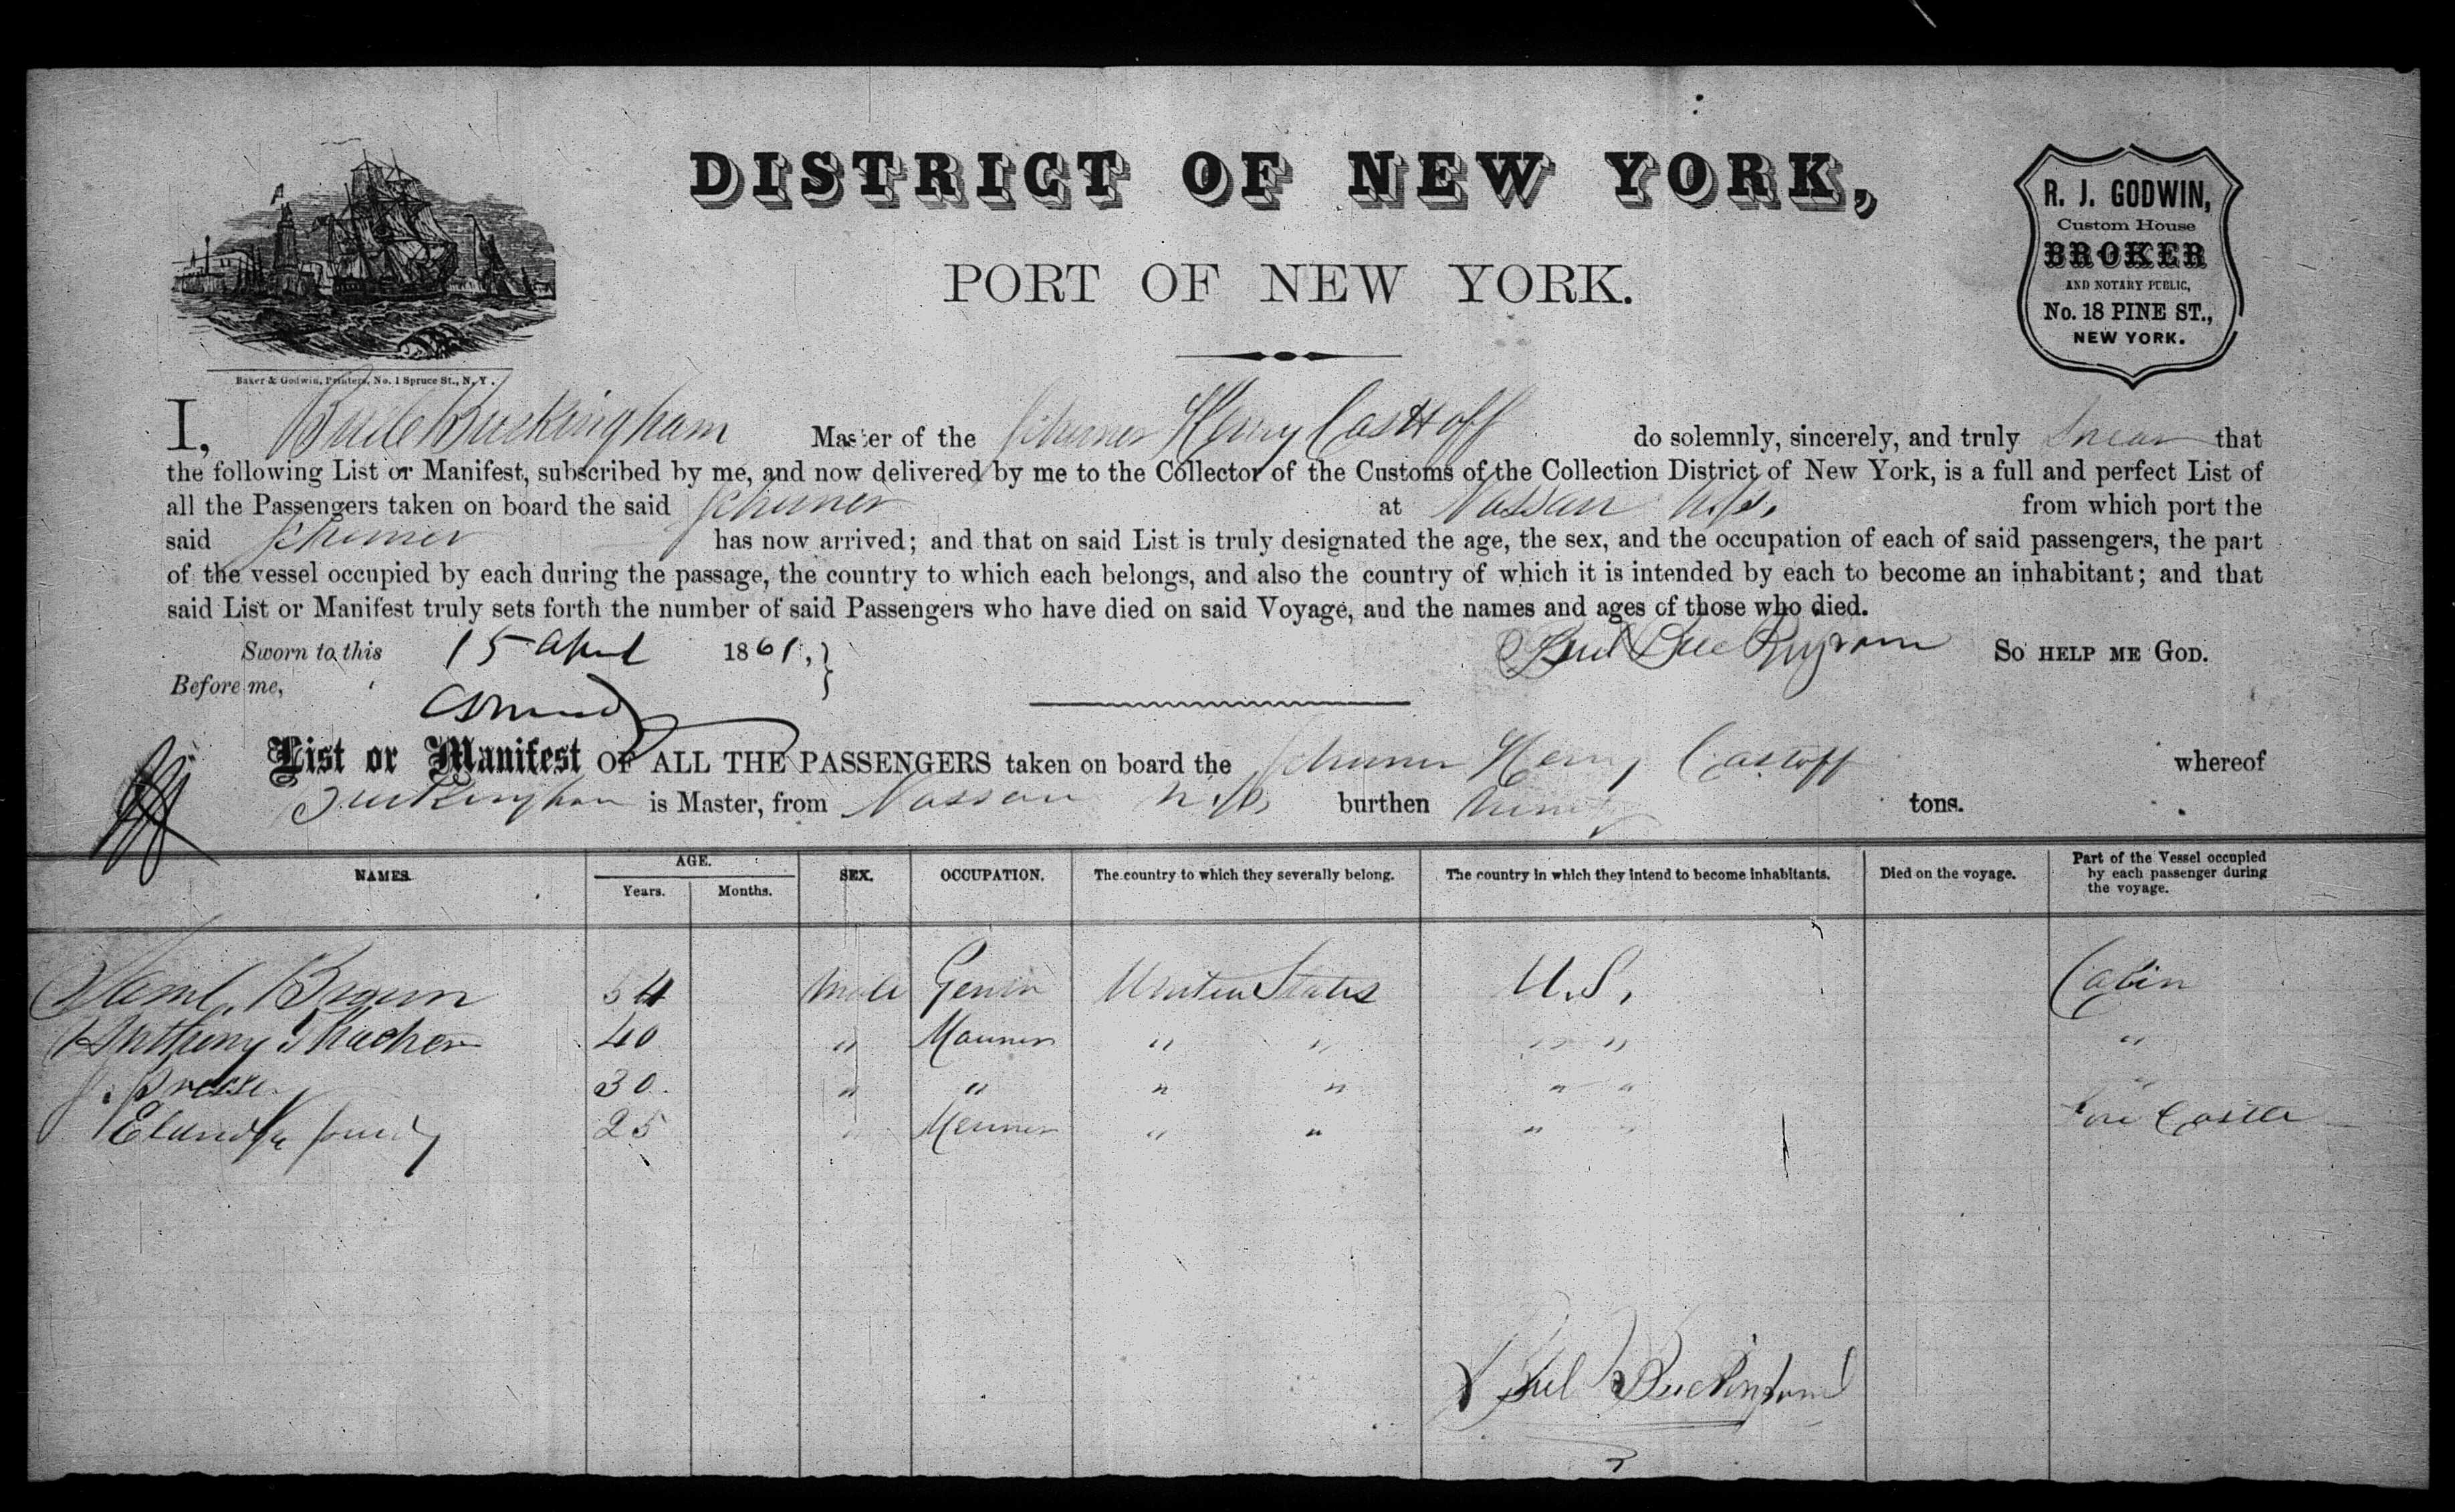 DISTRICT OF NEW YORK,
PORT OF NEW YORK.
R. J. GODWIN,
Custom House
BROKER
AND NOTARY PUBLIC,
No. 18 PINE ST.,
NEW YORK.
Baker & Godwin, Printers, No. 1 Spruce St., N. Y.
I, Buckingham Master of the Schuner Henry Castoff do solemnly, sincerely, and truly Swear that
the following List or Manifest, subscribed by me, and now delivered by me to the Collector of the Customs of the Collection District of New York, is a full and perfect List of
all the Passengers taken on board the said Schuner at Nassau N.P. from which port the
said Schuner has now arrived; and that on said List is truly designated the age, the sex, and the occupation of each of said passengers, the part
of the vessel occupied by each during the passage, the country to which each belongs, and also the country of which it is intended by each to become an inhabitant; and that
said List or Manifest truly sets forth the number of said Passengers who have died on said Voyage, and the names and ages of those who died.
Sworn to this 15 April 1861, Buckingham So HELP ME GOD.
Before me,
List or Manifest OF ALL THE PASSENGERS taken on board the Schuner Henry Castoff whereof
Buckingham is Master, from Nassau N.P. burthen tons.
NAMES. AGE. Years. Months. SEX. OCCUPATION. The country to which they severally belong. The country in which they intend to become inhabitants. Died on the voyage. Part of the Vessel occupied by each passenger during the voyage.
Saml. Brown 54 Male United States U.S. Cabin
Anthony Thacher 40 " Mariner " " " " "
J. 30 " " " " " " "
25 " Mariner " " " " Fore Castle
Buckingham